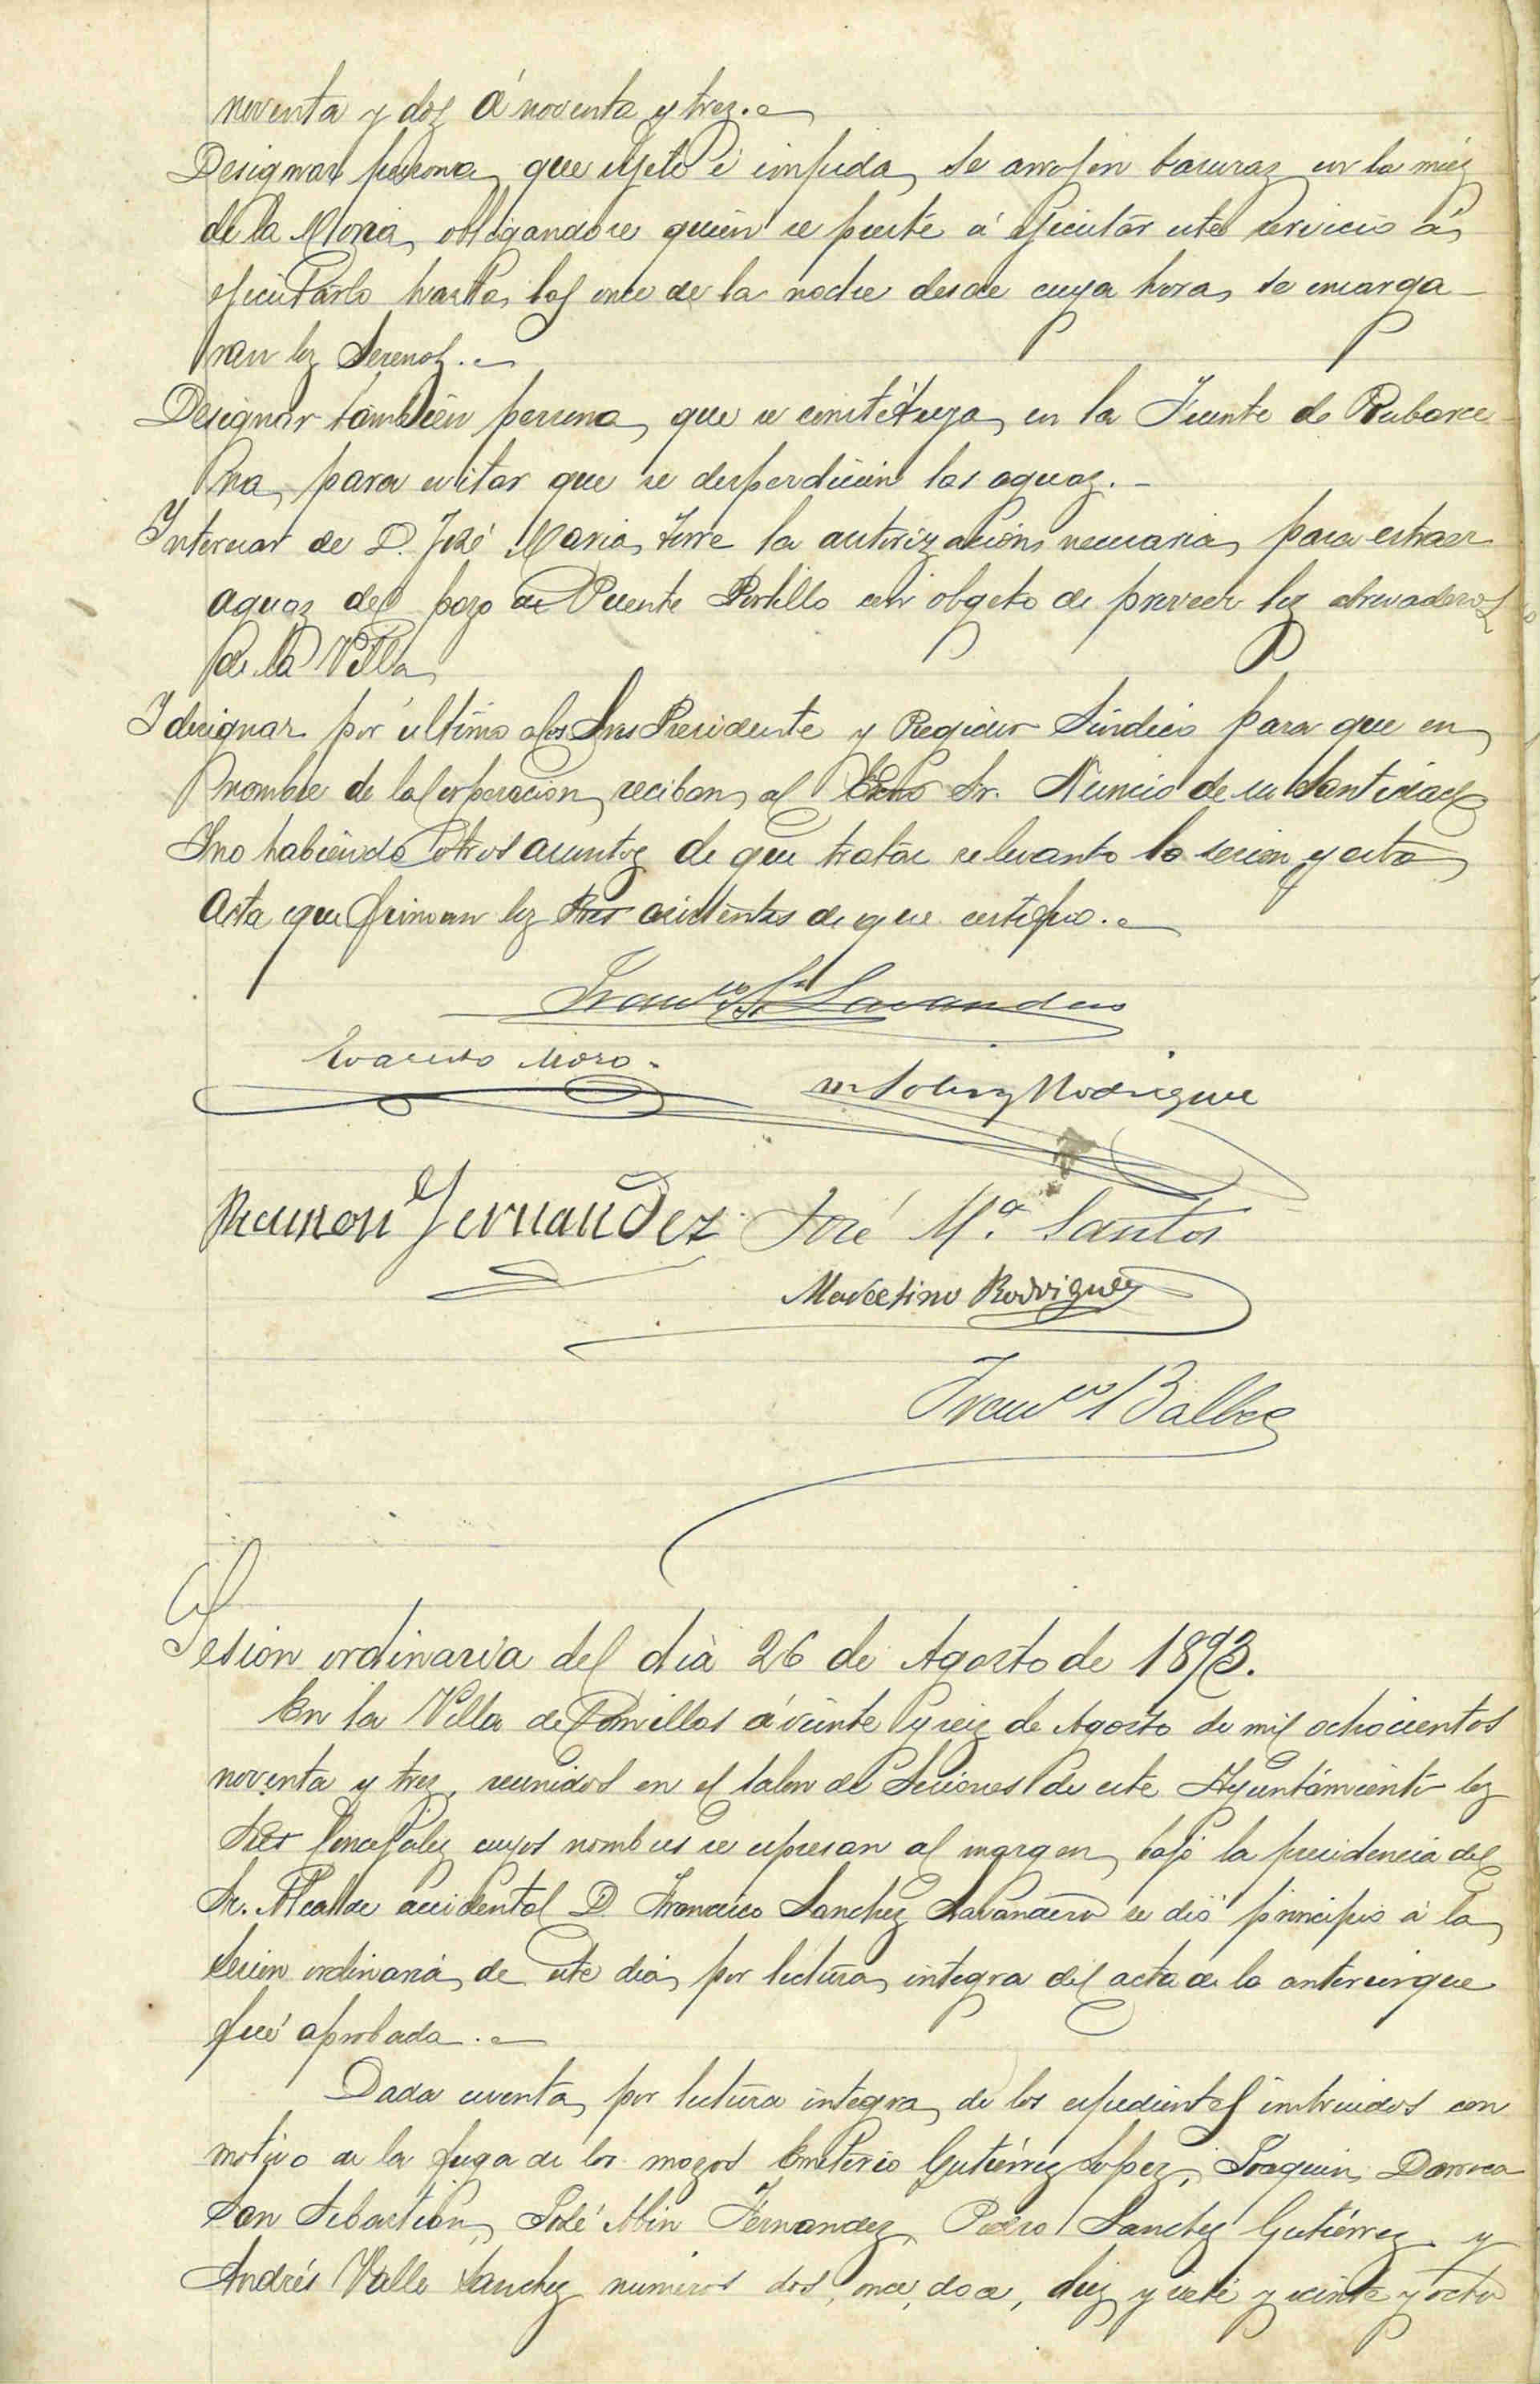 noventa y dos á noventa y tres.
Designar persona que vijile é impida, se arrojen basuras en la mies
de la Noria, obligandose quien se preste á ejecutar este servicio á
ejecutarlo hasta las once de la noche desde cuya hora, se encarga-
ran los Serenos.
Designar también persona, que se constituya, en la Fuente de Rubarce-
na, para evitar que se desperdicien las aguas.
Interesar de D. José Maria Torre la autorización necesaria, para estraer
aguas del pozo de Puente Portillo con objeto de proveer los abrevaderos
de la Villa
I designar por último a los Sres Presidente y Regidor Síndico para que en
nombre de la Corporación, reciban, al Excmo Sr. Nuncio de su Santidad
I no habiendo otros asuntos de que tratar se levanto la sesion y esta
acta que firman los Sres asistentes de que certifico.
Franco. S. Lavandero
Evaristo Moro
Rodriguez
Ramon Fernandez José Ma. Santos
Marcelino Rodriguez
Franco Balbas
Sesion ordinaria del dia 26 de Agosto de 1893.
En la Villa de Comillas á veinte y seis de Agosto de mil ochocientos
noventa y tres, reunidos en el Salon de Sesiones de este Ayuntamiento los
Sres Concejales cuyos nombres se espresan al margen, bajo la presidencia del
Sr. Alcalde accidental D. Francisco Sanchez Lavandero se dió principio á la
sesion ordinaria, de este dia, por lectura, integra del acta de la anterior que
fué aprobada.
Dada cuenta, por lectura integra, de los espedientes instruidos con
motivo de la fuga de los mozos Emeterio Gutiérrez Lopez, Joaquin
San Sebastian, José Fernandez, Pedro Sanchez Gutiérrez y
Andrés Valle Sanchez numeros dos, once, doce, diez y siete y veinte y ocho